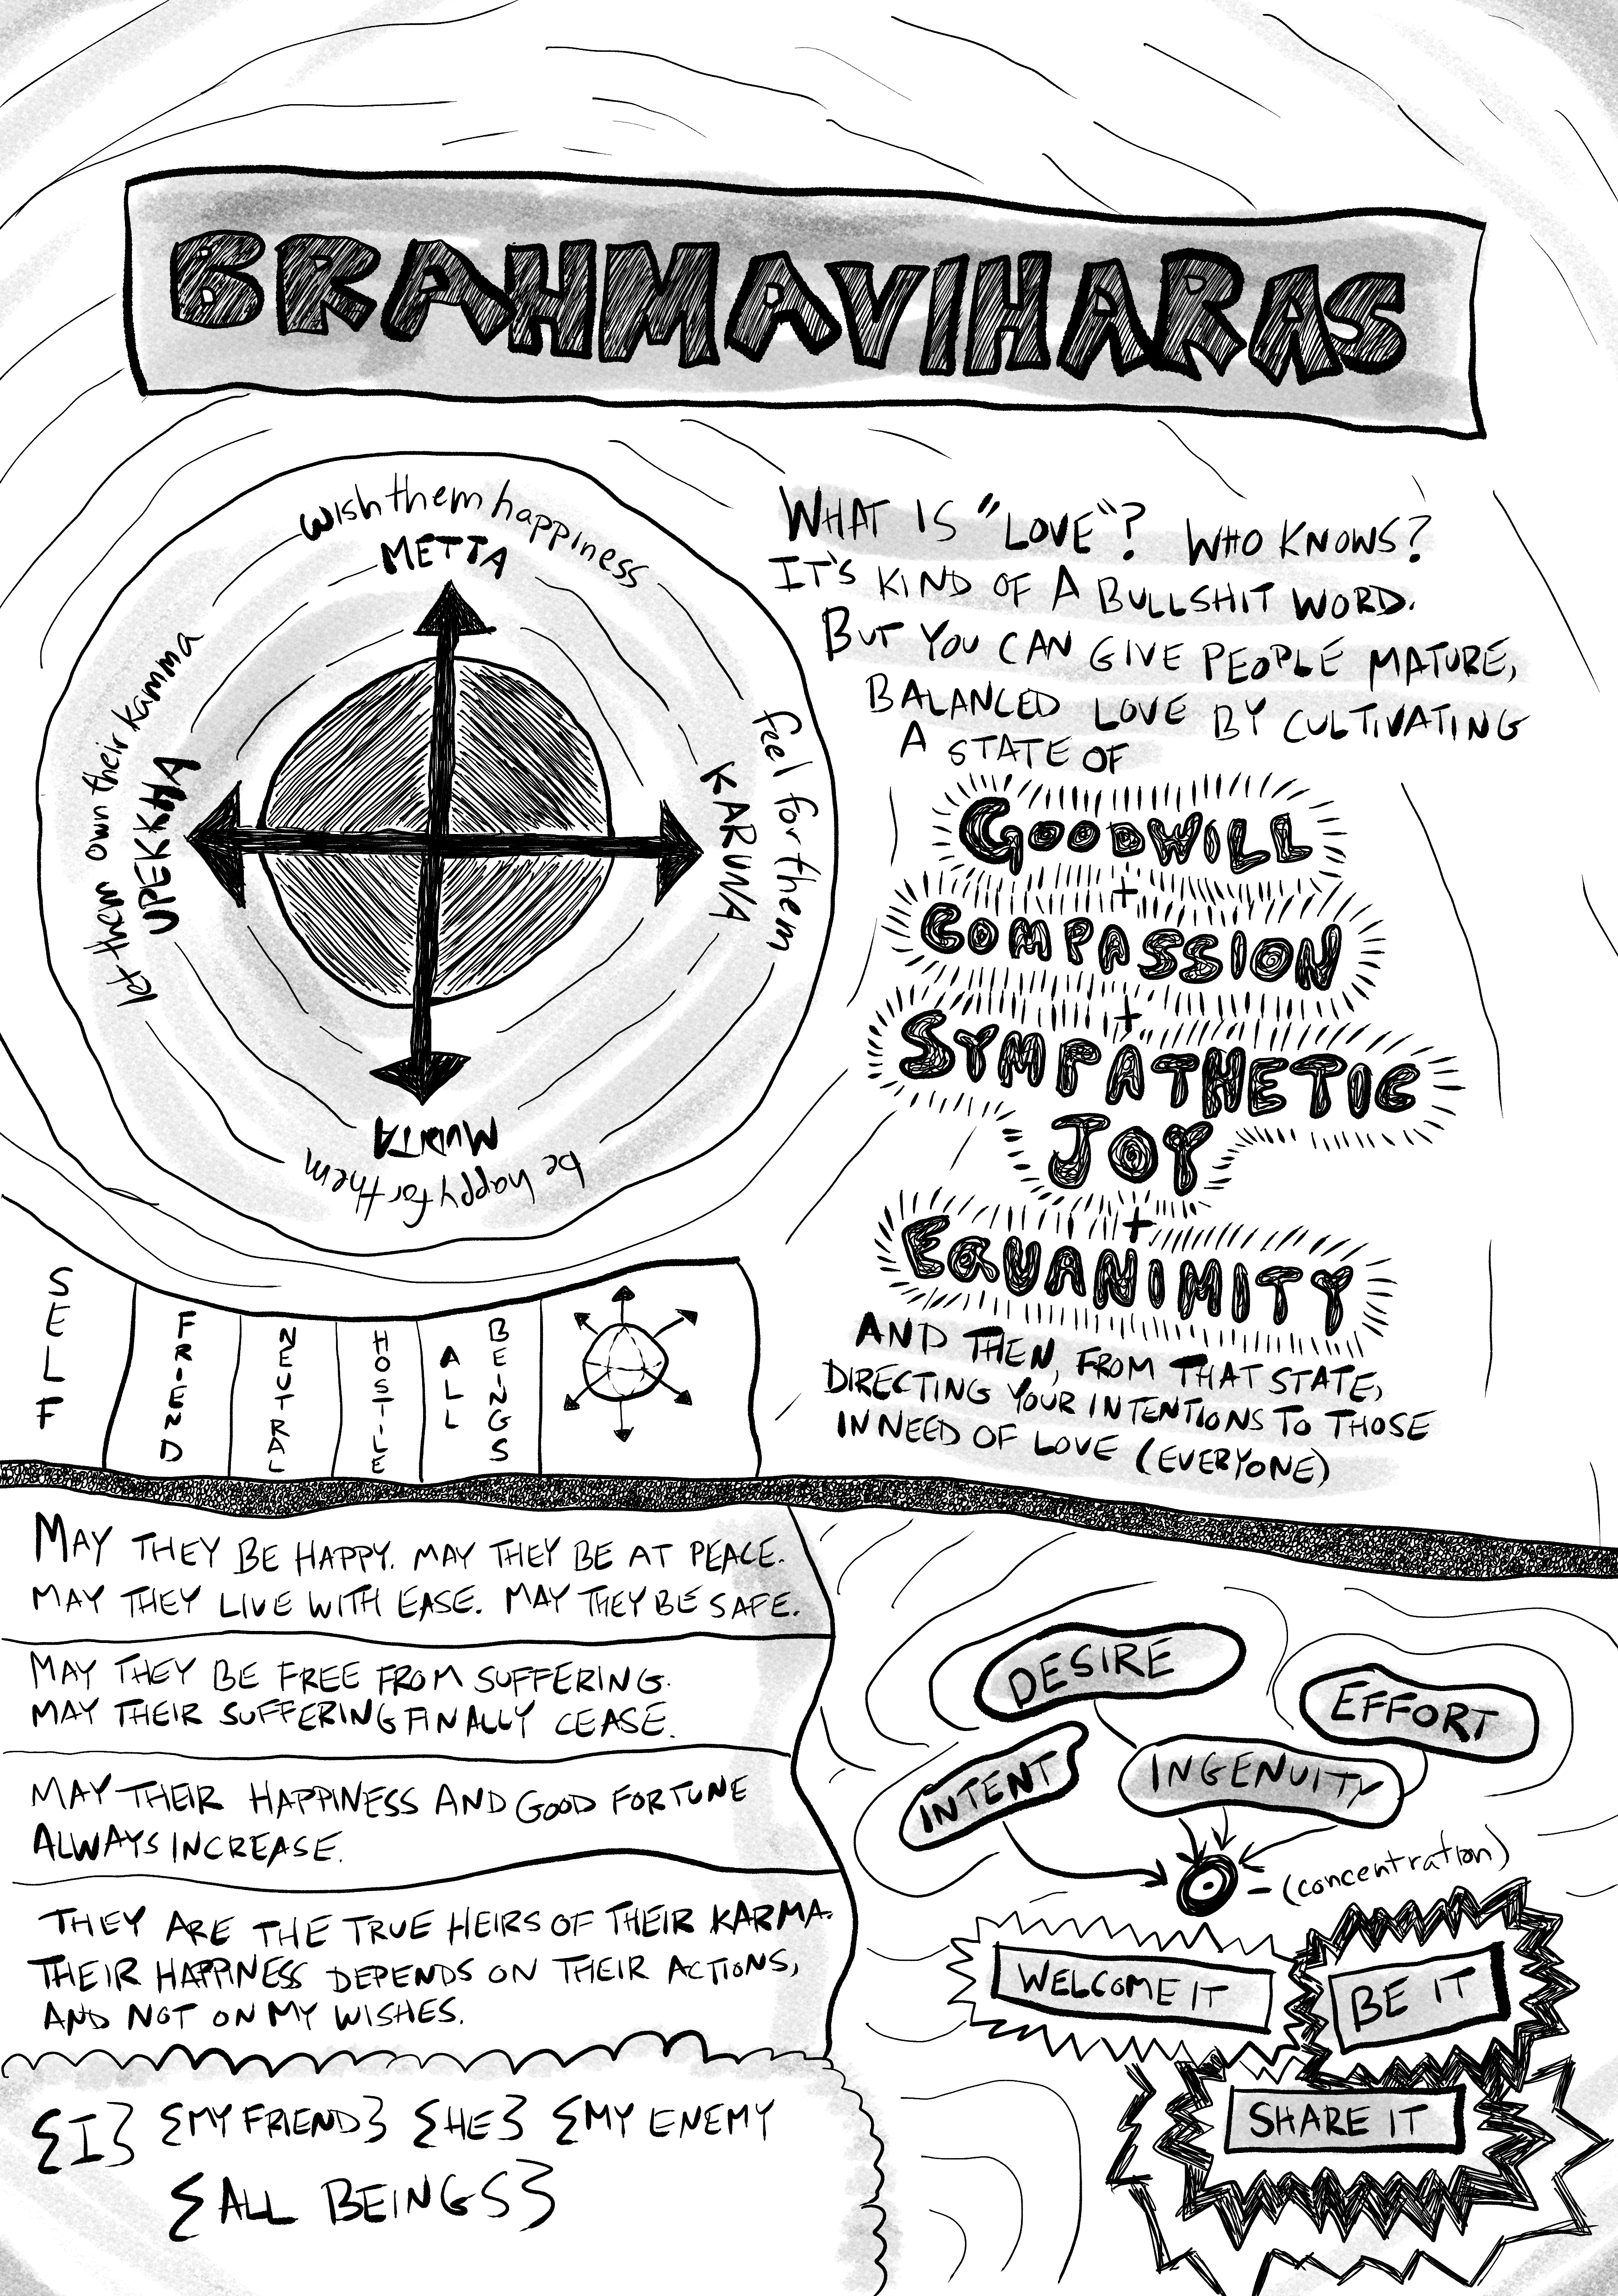 BRAHMAVIHARAS
wish them happiness
METTA
feel for them
KARUNA
be happy for them
MUDITA
let them own their kamma
UPEKKHA
WHAT IS "LOVE"? WHO KNOWS?
IT'S KIND OF A BULLSHIT WORD.
BUT YOU CAN GIVE PEOPLE MATURE,
BALANCED LOVE BY CULTIVATING
A STATE OF
GOODWILL
+
COMPASSION
+
SYMPATHETIC
JOY
+
EQUANIMITY
AND THEN, FROM THAT STATE,
DIRECTING YOUR INTENTIONS TO THOSE
IN NEED OF LOVE (EVERYONE)
SELF
FRIEND
NEUTRAL
HOSTILE
ALL
BEINGS
MAY THEY BE HAPPY. MAY THEY BE AT PEACE.
MAY THEY LIVE WITH EASE. MAY THEY BE SAFE.
MAY THEY BE FREE FROM SUFFERING.
MAY THEIR SUFFERING FINALLY CEASE.
MAY THEIR HAPPINESS AND GOOD FORTUNE
ALWAYS INCREASE.
THEY ARE THE TRUE HEIRS OF THEIR KARMA.
THEIR HAPPINESS DEPENDS ON THEIR ACTIONS,
AND NOT ON MY WISHES.
{I} {MY FRIEND} {HE} {MY ENEMY
{ALL BEINGS}
DESIRE
EFFORT
INTENT
INGENUITY
(concentration)
WELCOME IT
BE IT
SHARE IT